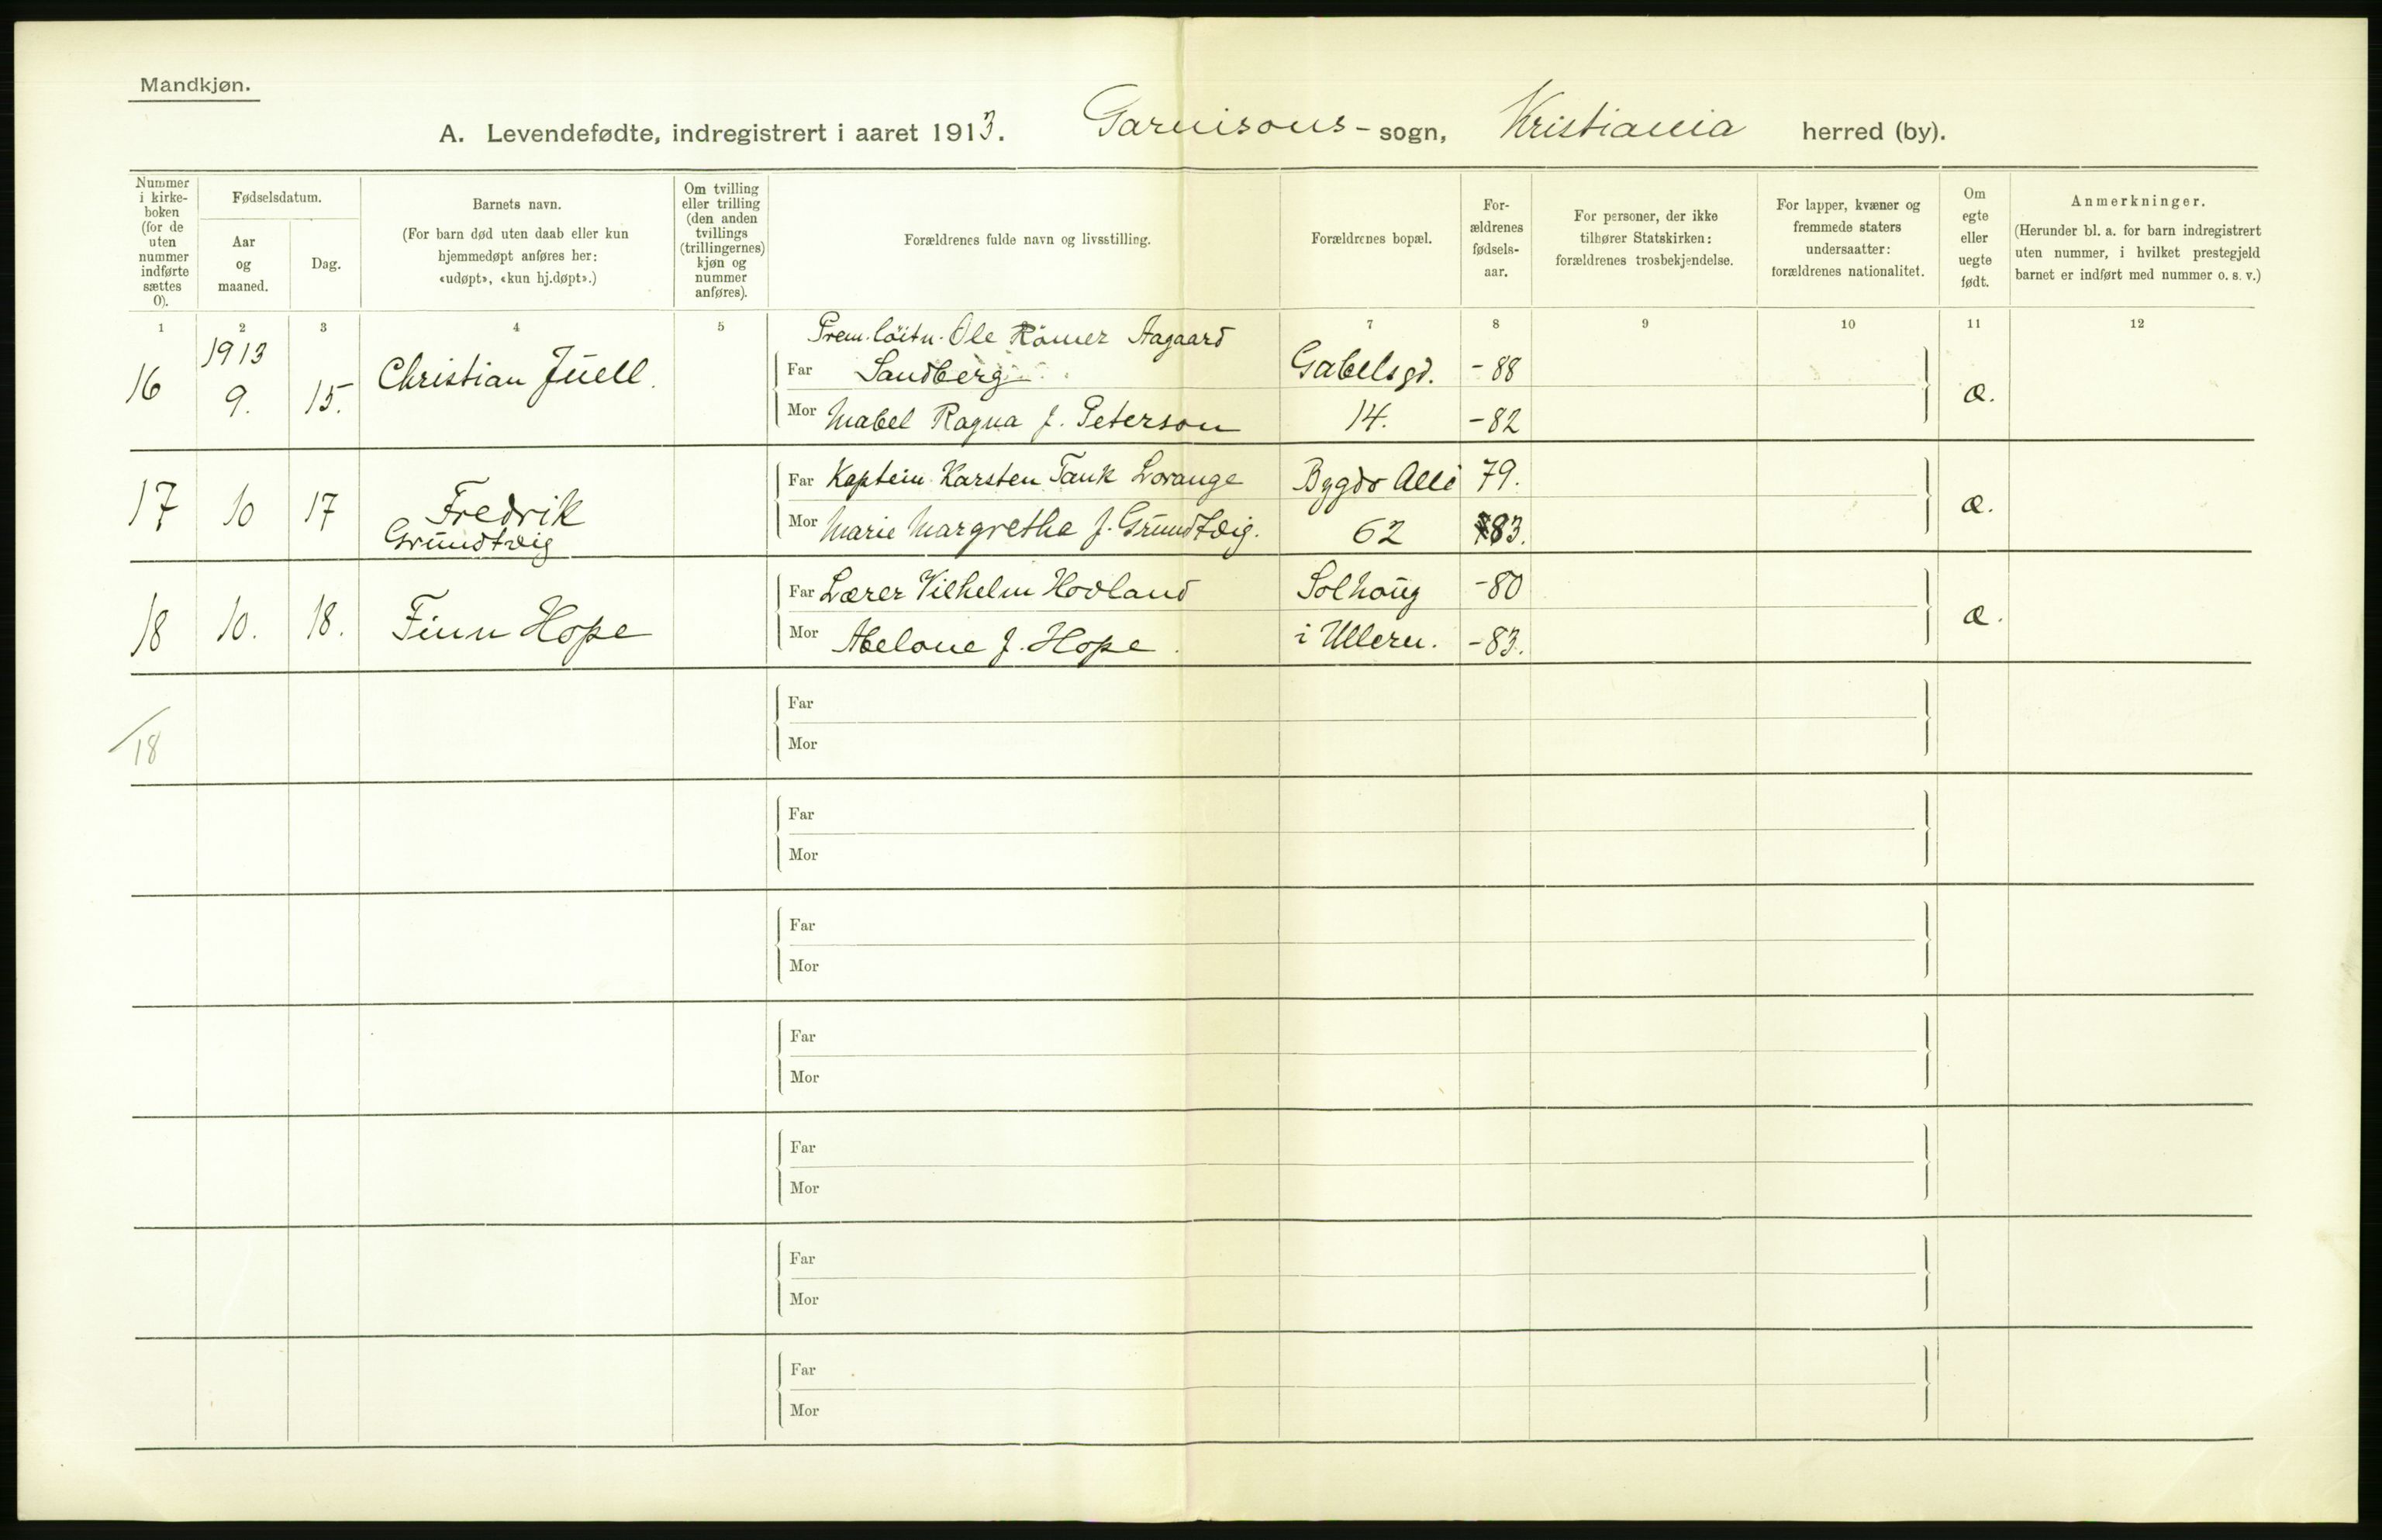 Mandkjøn.
A. Levendefødte, indregistrert i aaret 1913. Garnisons- sogn, Kristiania herred (by).
Nummer
i kirke-
boken
(for de
uten
nummer
indførte
sættes
0).
Fødselsdatum.
Aar
og
maaned.
Dag.
Barnets navn.
(For barn død uten daab eller kun
hjemmedøpt anføres her:
«udøpt», «kun hj.døpt».)
Om tvilling
eller trilling
(den anden
tvillings
(trillingernes)
kjøn og
nummer
anføres).
Forældrenes fulde navn og livsstilling.
Forældrenes bopæl.
For-
ældrenes
fødsels-
aar.
For personer, der ikke
tilhører Statskirken:
forældrenes trosbekjendelse.
For lapper, kvæner og
fremmede staters
undersaatter:
forældrenes nationalitet.
Om
egte
eller
uegte
født.
Anmerkninger.
(Herunder bl. a. for barn indregistrert
uten nummer, i hvilket prestegjeld
barnet er indført med nummer o. s. v.)
1 2 3 4 5 7 8 9 10 11 12
1913
16 9. 15. Christian Juell.
Prem.löitn. Ole Römer Aagaard
Far Sandberg Gabelsgd. -88
Mor Mabel Ragna f. Peterson 14. -82
æ.
17 10 17 Fredrik
Grundtvig
Far Kaptein Karsten Tank Lorange Bygdø Allé 79.
Mor Marie Margrethe f. Grundtvig. 62 83.
æ.
18 10. 18. Finn Hope
Far Lærer Vilhelm Hovland Solhaug -80
Mor Abelone f. Hope. i Ullern. -83.
æ.
18
Far
Mor
Far
Mor
Far
Mor
Far
Mor
Far
Mor
Far
Mor
Far
Mor